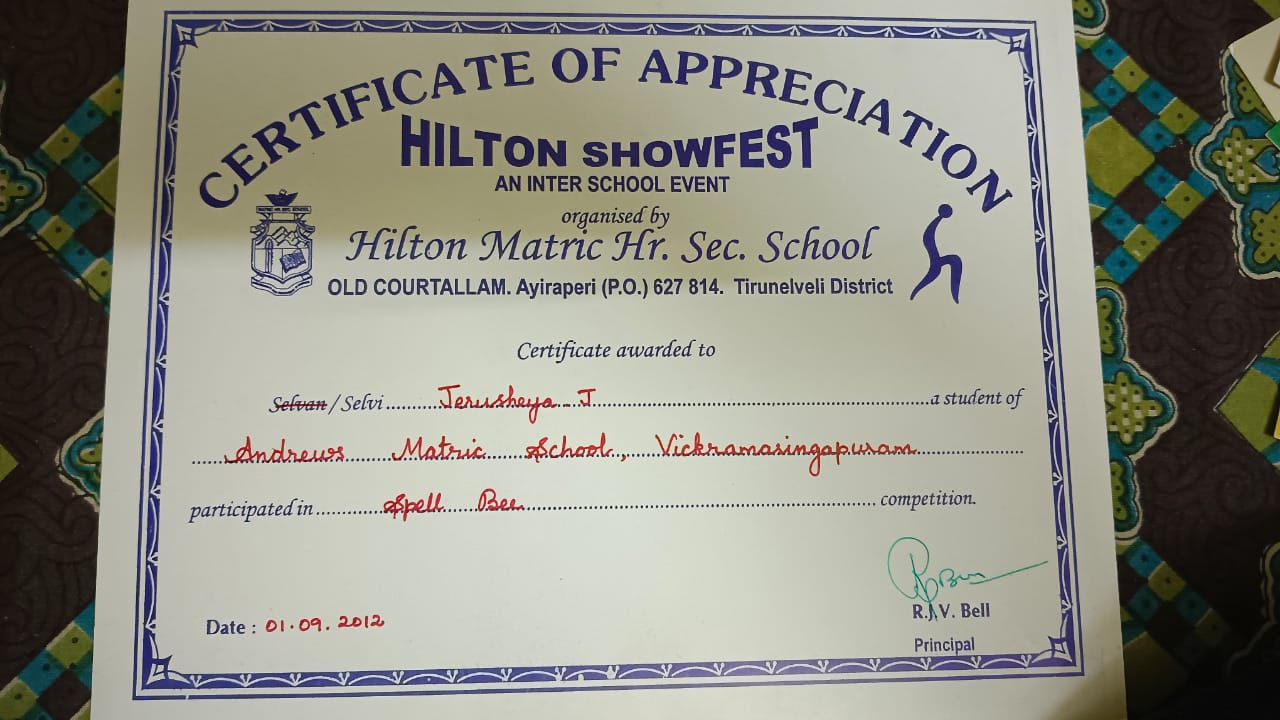 CERTIFICATE OF APPRECIATION
HILTON SHOWFEST
AN INTER SCHOOL EVENT
organised by
MATRIC HR. SEC. SCHOOL
Hilton Matric Hr. Sec. School
OLD COURTALLAM. Ayiraperi (P.O.) 627 814. Tirunelveli District
Certificate awarded to
Selvan / Selvi ........ Jerusheya. J ........ a student of
Andrews Matric School, Vickramasingapuram
participated in ........ Spell Bee ........ competition.
R.J.V. Bell
Date : 01.09.2012
Principal